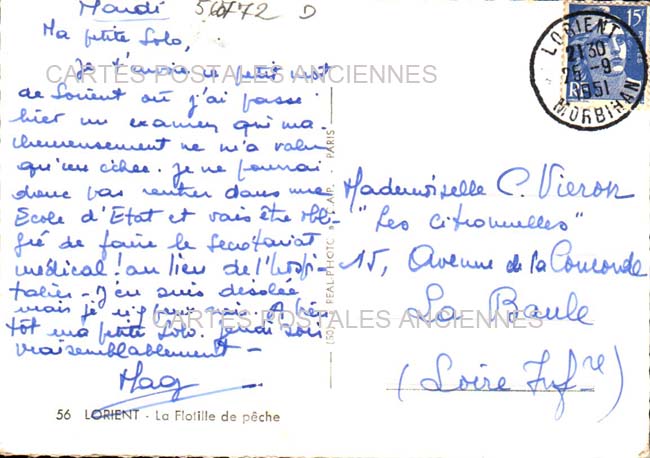 Mardi
50772 D
Ma petite Solo,
Je t'envoie ce petit mot
de Lorient où j'ai passé
hier un examen qui ma-
lheureusement ne m'a valu
qu'un échec. Je ne pourrai
donc pas rentrer dans une
Ecole d'Etat et vais être obli-
gée de faire le Secrétariat
médical! au lieu de l'hospi-
talier - J'en suis désolée
mais je n'y puis rien. A bien
tôt ma petite Solo. Jeudi soir
vraisemblablement -
Mag
56 LORIENT - La Flotille de pêche
CARTES POSTALES ANCIENNES
CARTES POSTALES ANCIENNES
REAL-PHOTO
C.A.P. - PARIS
LORIENT
21 30
25 - 9
1951
MORBIHAN
15F
RF
Mademoiselle C. Vieron
"Les citronnelles"
15, Avenue de la Concorde
La Baule
(Loire Infre)